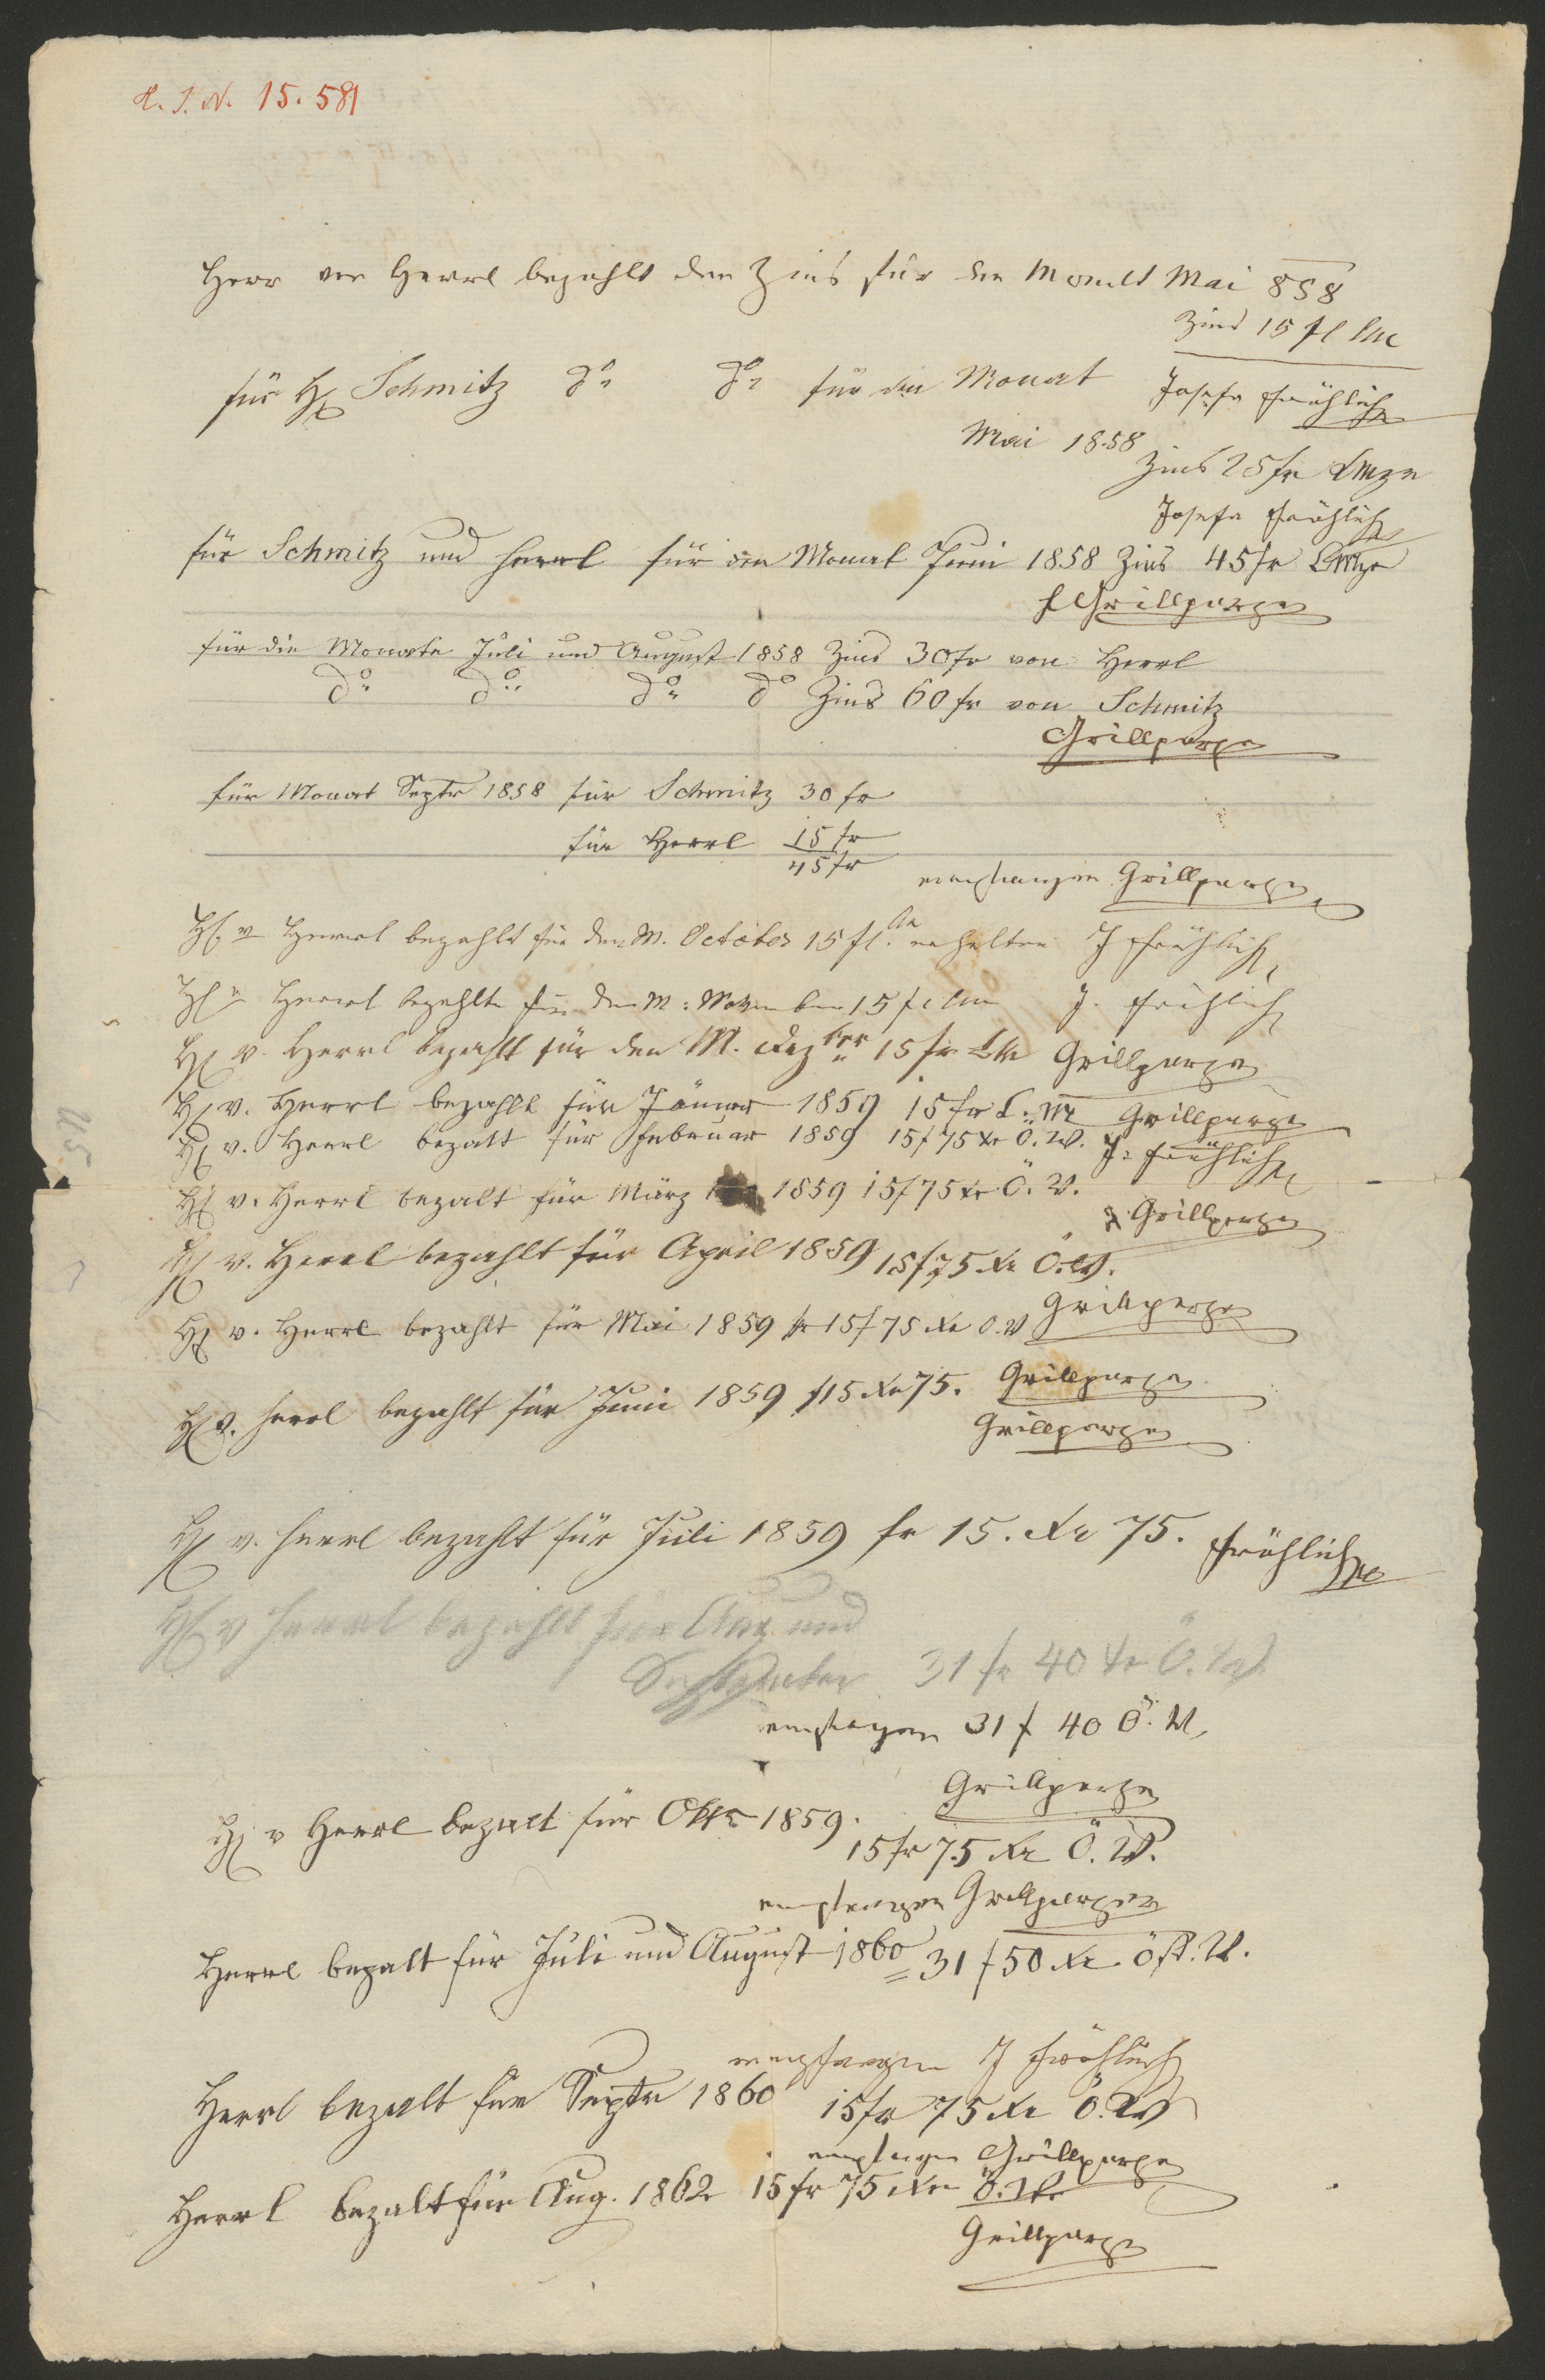 H. I. N. 15.581
Herr von Herrl bezahlt den Zins für den Monat Mai 858
Zins 15 fl CM
für H. Schmitz do do für den Monat
Josefa Fröhlich
Mai 1858
Zins 25 fr CMze
Josefa Fröhlich
für Schmitz und Herrl für den Monat Juni 1858 Zins 45 fr CMze
f Grillparzer
für die Monate Juli und August 1858 Zins 30 fr von Herrl
do do do do Zins 60 fr von Schmitz
Grillparzer
für Monat Septr 1858 für Schmitz 30 fr
für Herrl 15 fr
45 fr
empfangen Grillparzer
H. v Herrl bezahlt für den M. October 15 fl. CM erhalten J Fröhlich
H. v Herrl bezahlte für den M: November 15 fl CM J. Fröhlich
H. v. Herrl bezahlt für den M. Dezber 15 fr CM Grillparzer
H. v. Herrl bezahlt für Jänner 1859 15 fr C. M Grillparzer
H. v. Herrl bezalt für Februar 1859 15 f 75 xr Ö. W. J. Fröhlich
H. v. Herrl bezalt für März 1859 15 f 75 xr Ö. W.
Grillparzer
H. v. Herrl bezahlt für April 1859 15 f 75 xr Ö. W.
Grillparzer
H. v. Herrl bezahlt für Mai 1859 fr 15 f 75 xr O. W
Grillparzer
H. v. Herrl bezahlt für Juni 1859 f 15 xr 75.
Grillparzer
H. v. Herrl bezahlt für Juli 1859 fr 15. xr 75. Fröhlich
H. v Herrl bezahlt für Aug. und
September 31 fr 40 xr Ö. W.
empfangen 31 f 40 Ö. W.
Grillparzer
H. v Herrl bezalt für Oktr 1859.
15 fr 75 xr Ö. W.
empfangen Grillparzer
Herrl bezalt für Juli und August 1860 = 31 f 50 xr öst. W.
empfangen J Fröhlich
Herrl bezalt für Septr 1860 15 fr 75 xr Ö. W
empfangen Grillparzer
Herrl bezalt für Aug. 1862 15 fr 75 xr Ö. W
Grillparzer